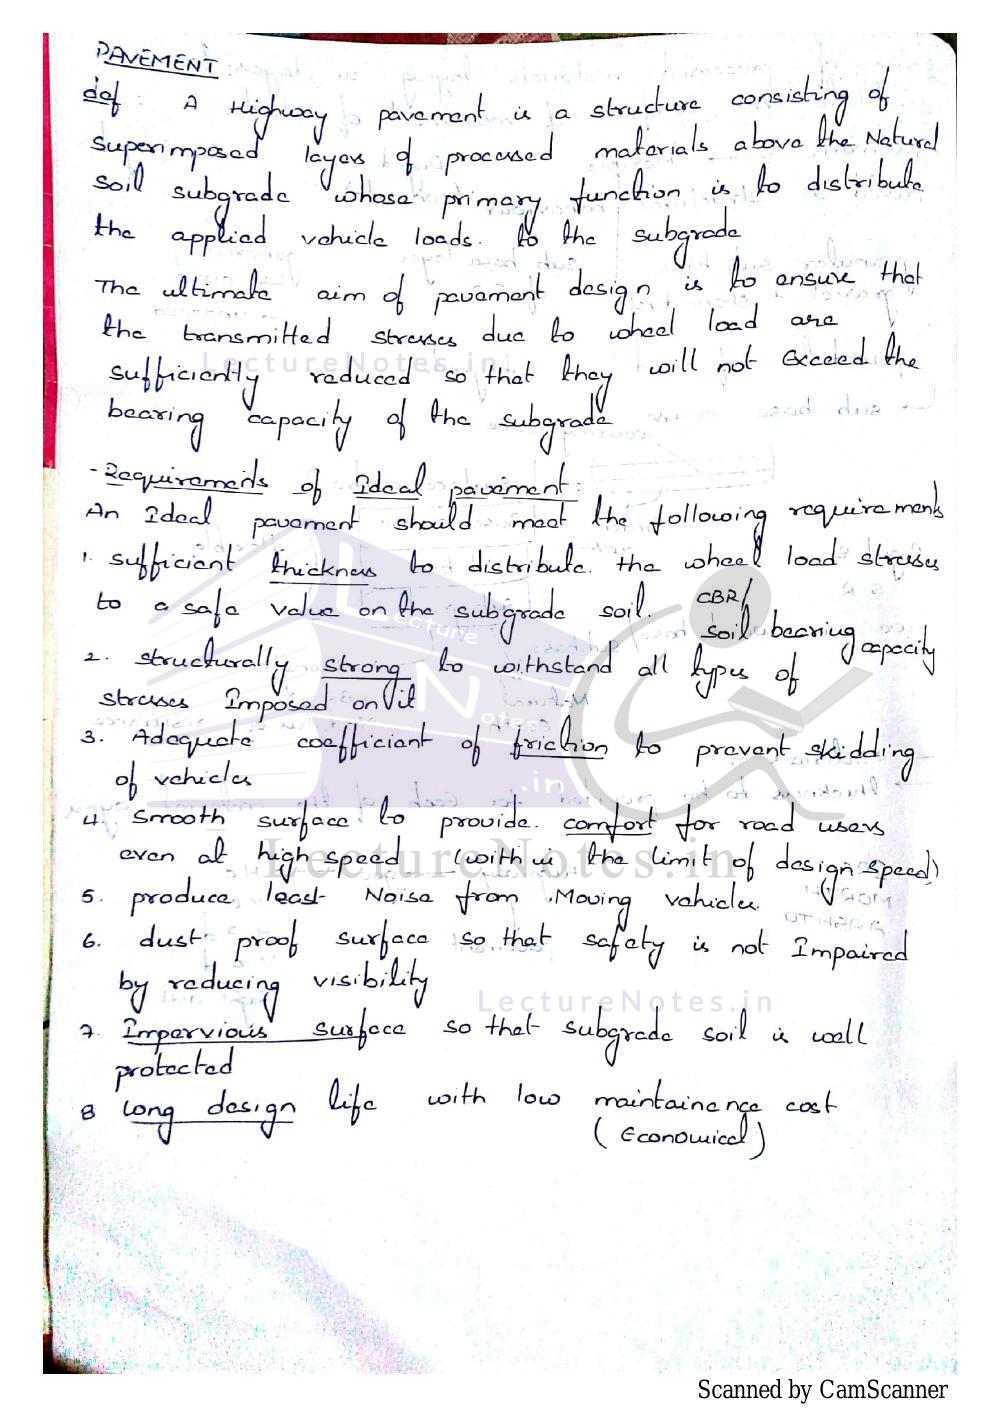 PAVEMENT
def : A Highway pavement is a structure consisting of
superimposed layers of processed materials above the Natural
soil subgrade whose primary function is to distribute
the applied vehicle loads. to the subgrade
The ultimate aim of pavement design is to ensure that
the transmitted stresses due to wheel load are
LectureNotes.in
sufficiently reduced so that they will not Exceed the
bearing capacity of the subgrade
- Requirements of Ideal pavement :
An Ideal pavement should meet the following requirements
1. sufficient thickness to distribute. the wheel load stresses
to a safe value on the subgrade soil. CBR/
soil bearing capacity
Lecture
2. structurally strong to withstand all types of
stresses Imposed on it
Notes
3. Adequate coefficient of friction to prevent skidding
of vehicles
.in
4. Smooth surface to provide. comfort for road users
even at high speed (with in the limit of design speed)
LectureNotes.in
5. produce least Noise from Moving vehicles.
6. dust proof surface so that safety is not Impaired
by reducing visibility
LectureNotes.in
7. Impervious surface so that subgrade soil is well
protected
8 Long design life with low maintainence cost
(Economical)
Scanned by CamScanner